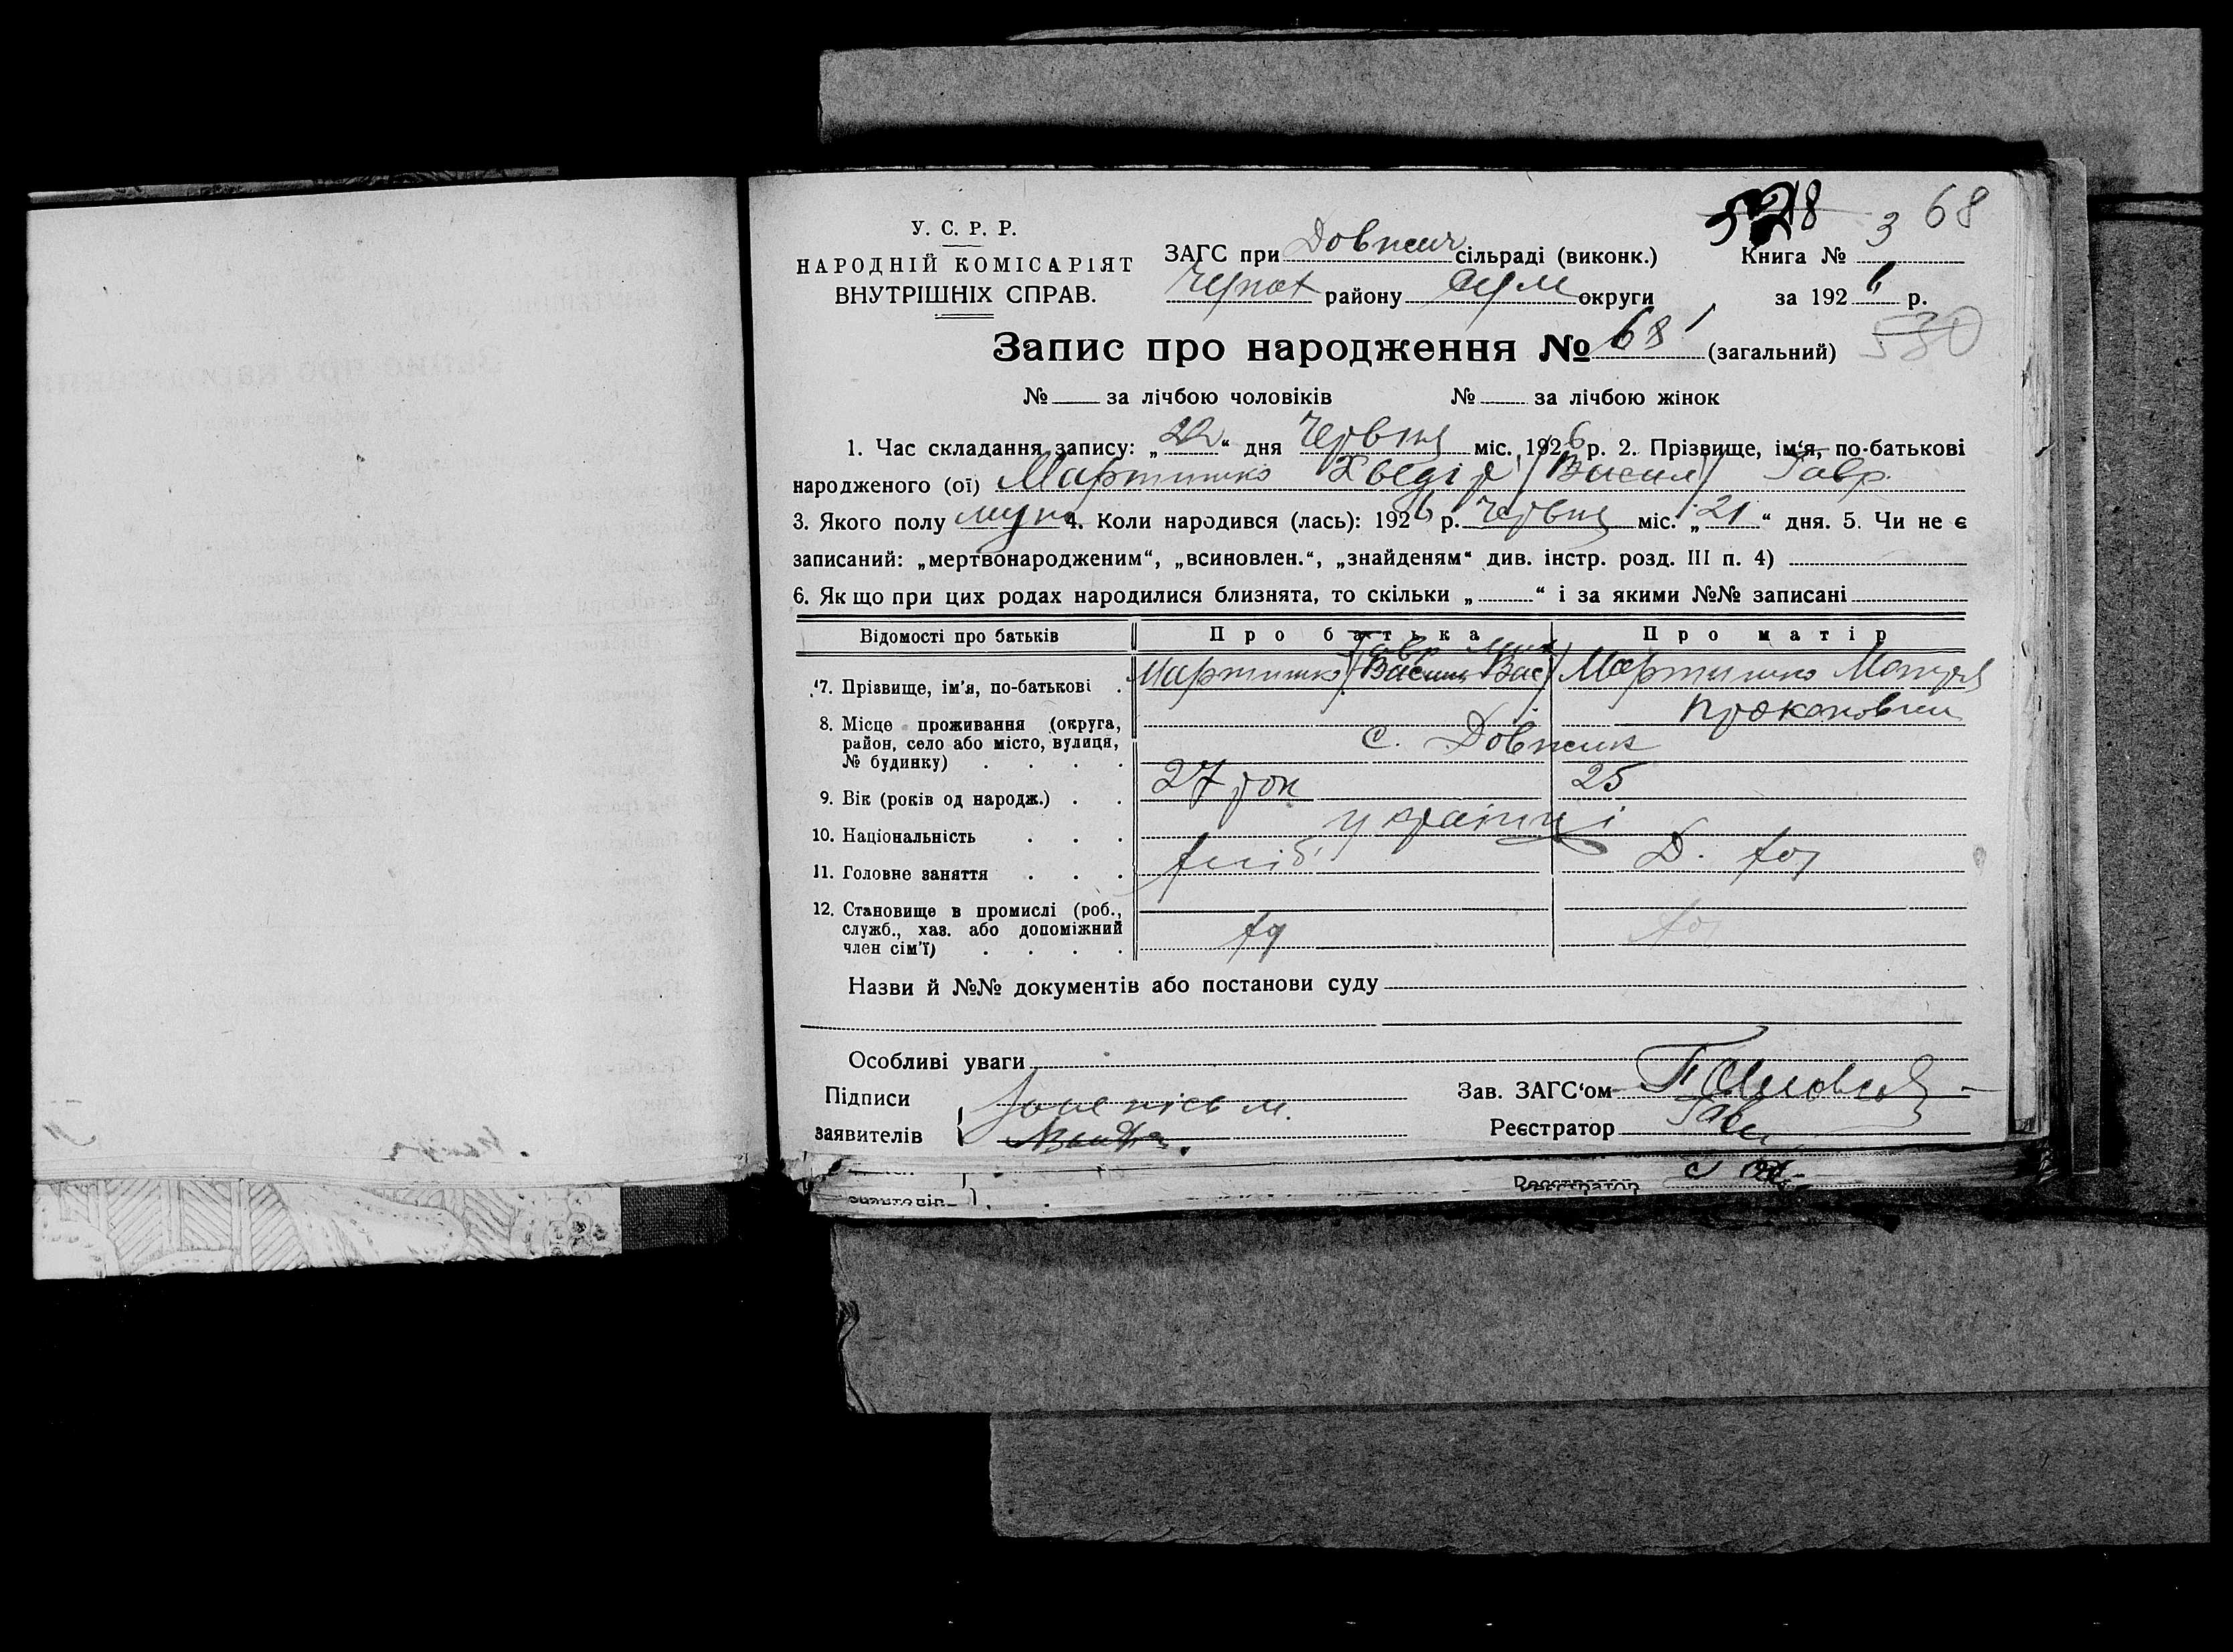 528 3 68
У. С. Р. Р.
НАРОДНІЙ КОМІСАРІЯТ
ВНУТРІШНІХ СПРАВ.
ЗАГС при Довжич сільраді (виконк.) Книга №
району Сум округи за 1926 р.
Запис про народження № 68 (загальний) 530
№ за лічбою чоловіків № за лічбою жінок
1. Час складання запису: „22“ дня Червня міс. 1926 р. 2. Прізвище, ім‘я, по-батькові
народженого (ої) Мартишко Хведір (Васил) Гавр.
3. Якого полу муж 4. Коли народився (лась): 1926 р. Червня міс. „21“ дня. 5. Чи не є
записаний: „мертвонародженим“, „всиновлен.“, „знайденям“ див. інстр. розд. III п. 4)
6. Як що при цих родах народилися близнята, то скільки „ “ і за якими №№ записані
Відомості про батьків Про батька Про матір
Гавр
7. Прізвище, ім'я, по-батькові Мартишко (Васил Вас) Мартишко
8. Місце проживання (округа,
район, село або місто, вулиця,
№ будинку) с. Довжик
9. Вік (років од народж.) 27 рок 25
10. Національність українці
11. Головне заняття хліб. Д. гос
12. Становище в промислі (роб.,
служб., хаз. або допоміжний
член сім'ї)
Назви й №№ документів або постанови суду
Особливі уваги
Підписи
заявителів
Зав. ЗАГС‘ом
Реєстратор
Реєстратор